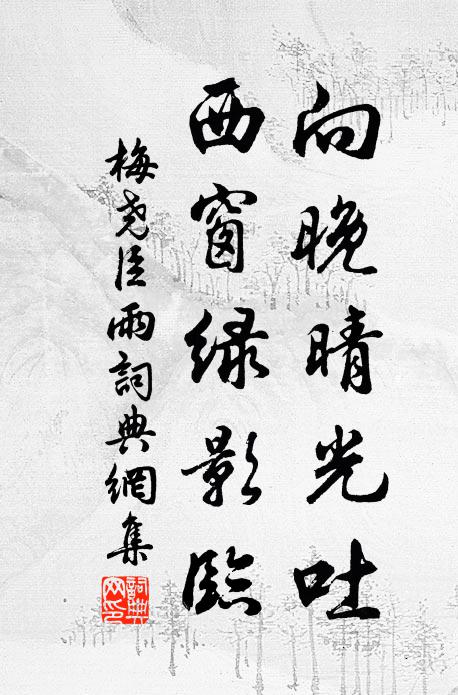 向晚晴光吐
西窗绿影臨
梅堯臣雨詞典網集
詞典